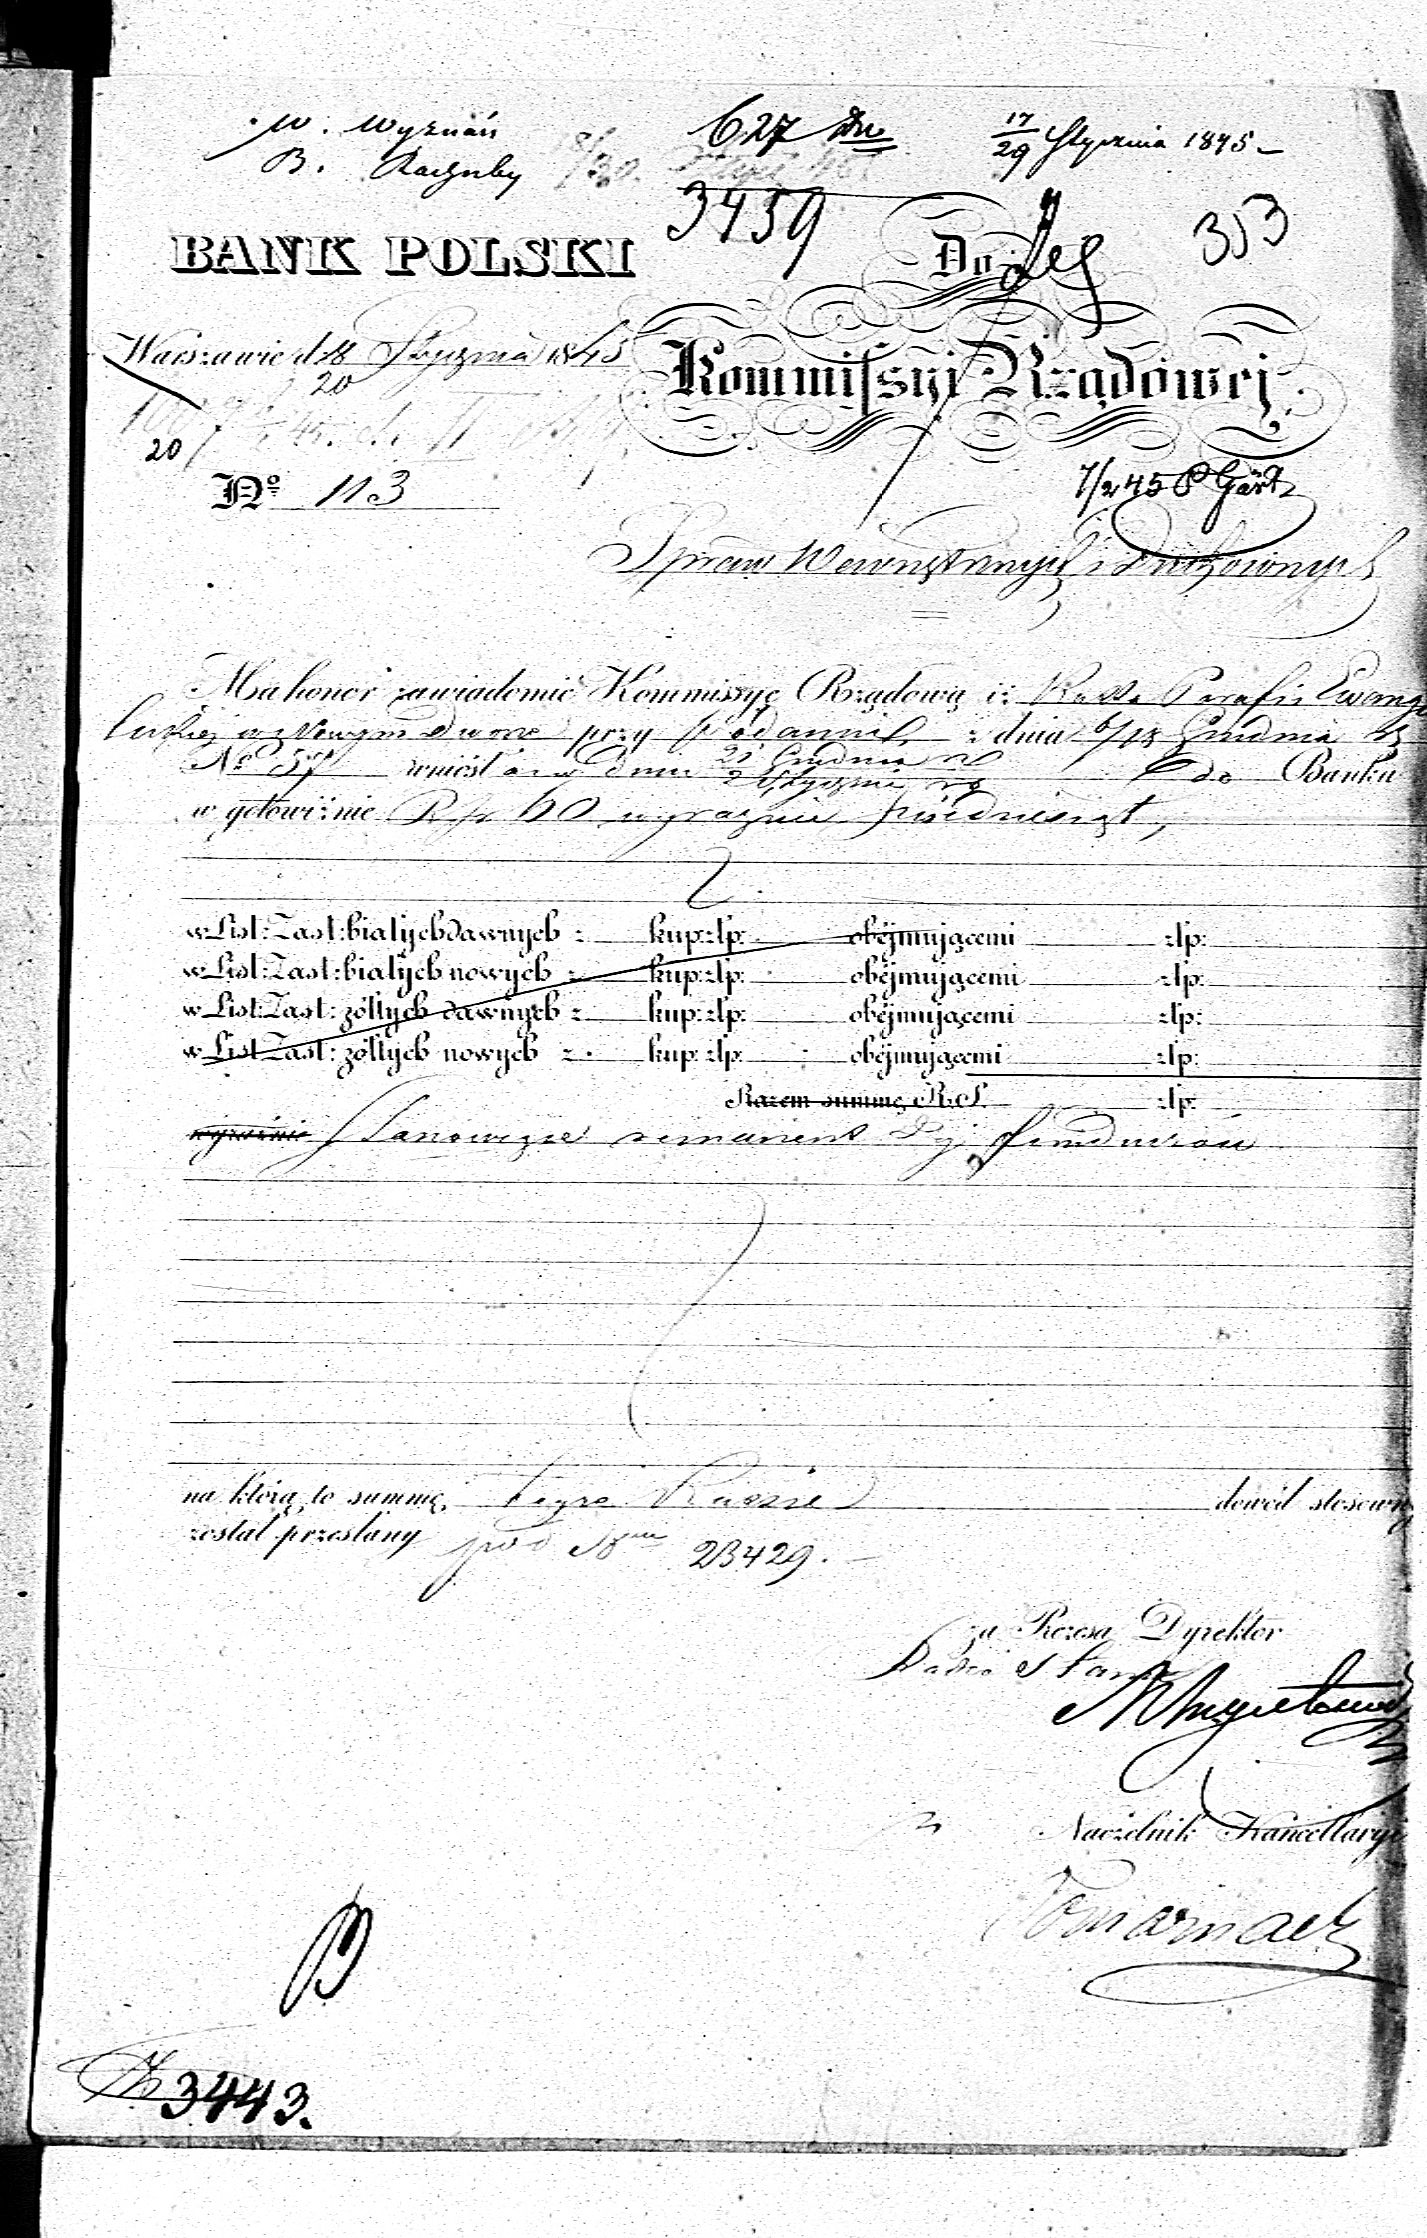 W. Wyznań
B. Rachuby
627
17/29 Stycznia 1845
3459
353
BANK POLSKI
Do
Warszawie d. 18 Stycznia 1845
20
Kommissyi Rządowej
20
No 113
7/2 45
Spraw Wewnętrznych i Duchownych
Ma honor zawiadomić Kommissyę Rządową iż Kassa Parafii Ewange
lickiej w Nowym dworze przy podaniu z dnia 6/18 Grudnia
No 57 wniosła w dniu Grudnia do Banku
Stycznia
w gotowiźnie Rsr 60 wyraźnie sześćdziesiąt,
w List: Zast: białych dawnych z kup: złp: obejmującemi złp:
w List: Zast: białych nowych z kup: złp: obejmującemi złp:
w List: Zast: żółtych dawnych z kup: złp: obejmującemi złp:
w List: Zast: żółtych nowych z kup: złp: obejmującemi złp:
Razem summę R.S. złp:
wyraźnie Stanowiące remanent Jej funduszów
na którą to summę tejże Kassie dowód stosowny
został przesłany pod Nrem 23429.
za Prezesa Dyrektor
Radca Stanu
Naczelnik Kancellaryi
3443.